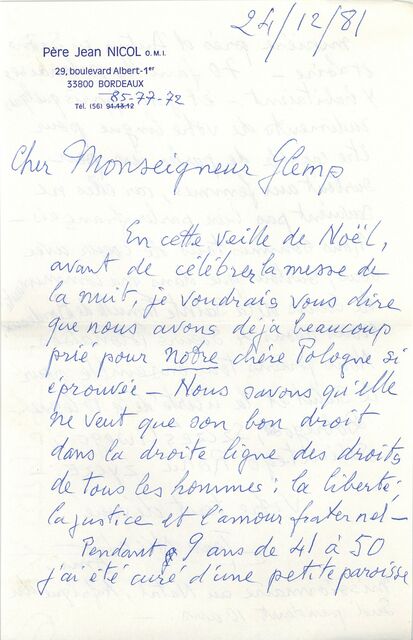 24/12/81
Père Jean NICOL O.M.I.
29, boulevard Albert-1er
33800 BORDEAUX
85-77-72
Tél. (56) 91.43.12
Cher Monseigneur Glemp
En cette veille de Noël,
avant de célébrer la messe de
la nuit, je voudrais vous dire
que nous avons déjà beaucoup
prié pour notre chère Pologne si
éprouvée – Nous savons qu'elle
ne veut que son bon droit
dans la droite ligne des droits
de tous les hommes : la liberté,
la justice et l'amour fraternel –
Pendant 9 ans de 41 à 50
j'ai été curé d'une petite paroisse